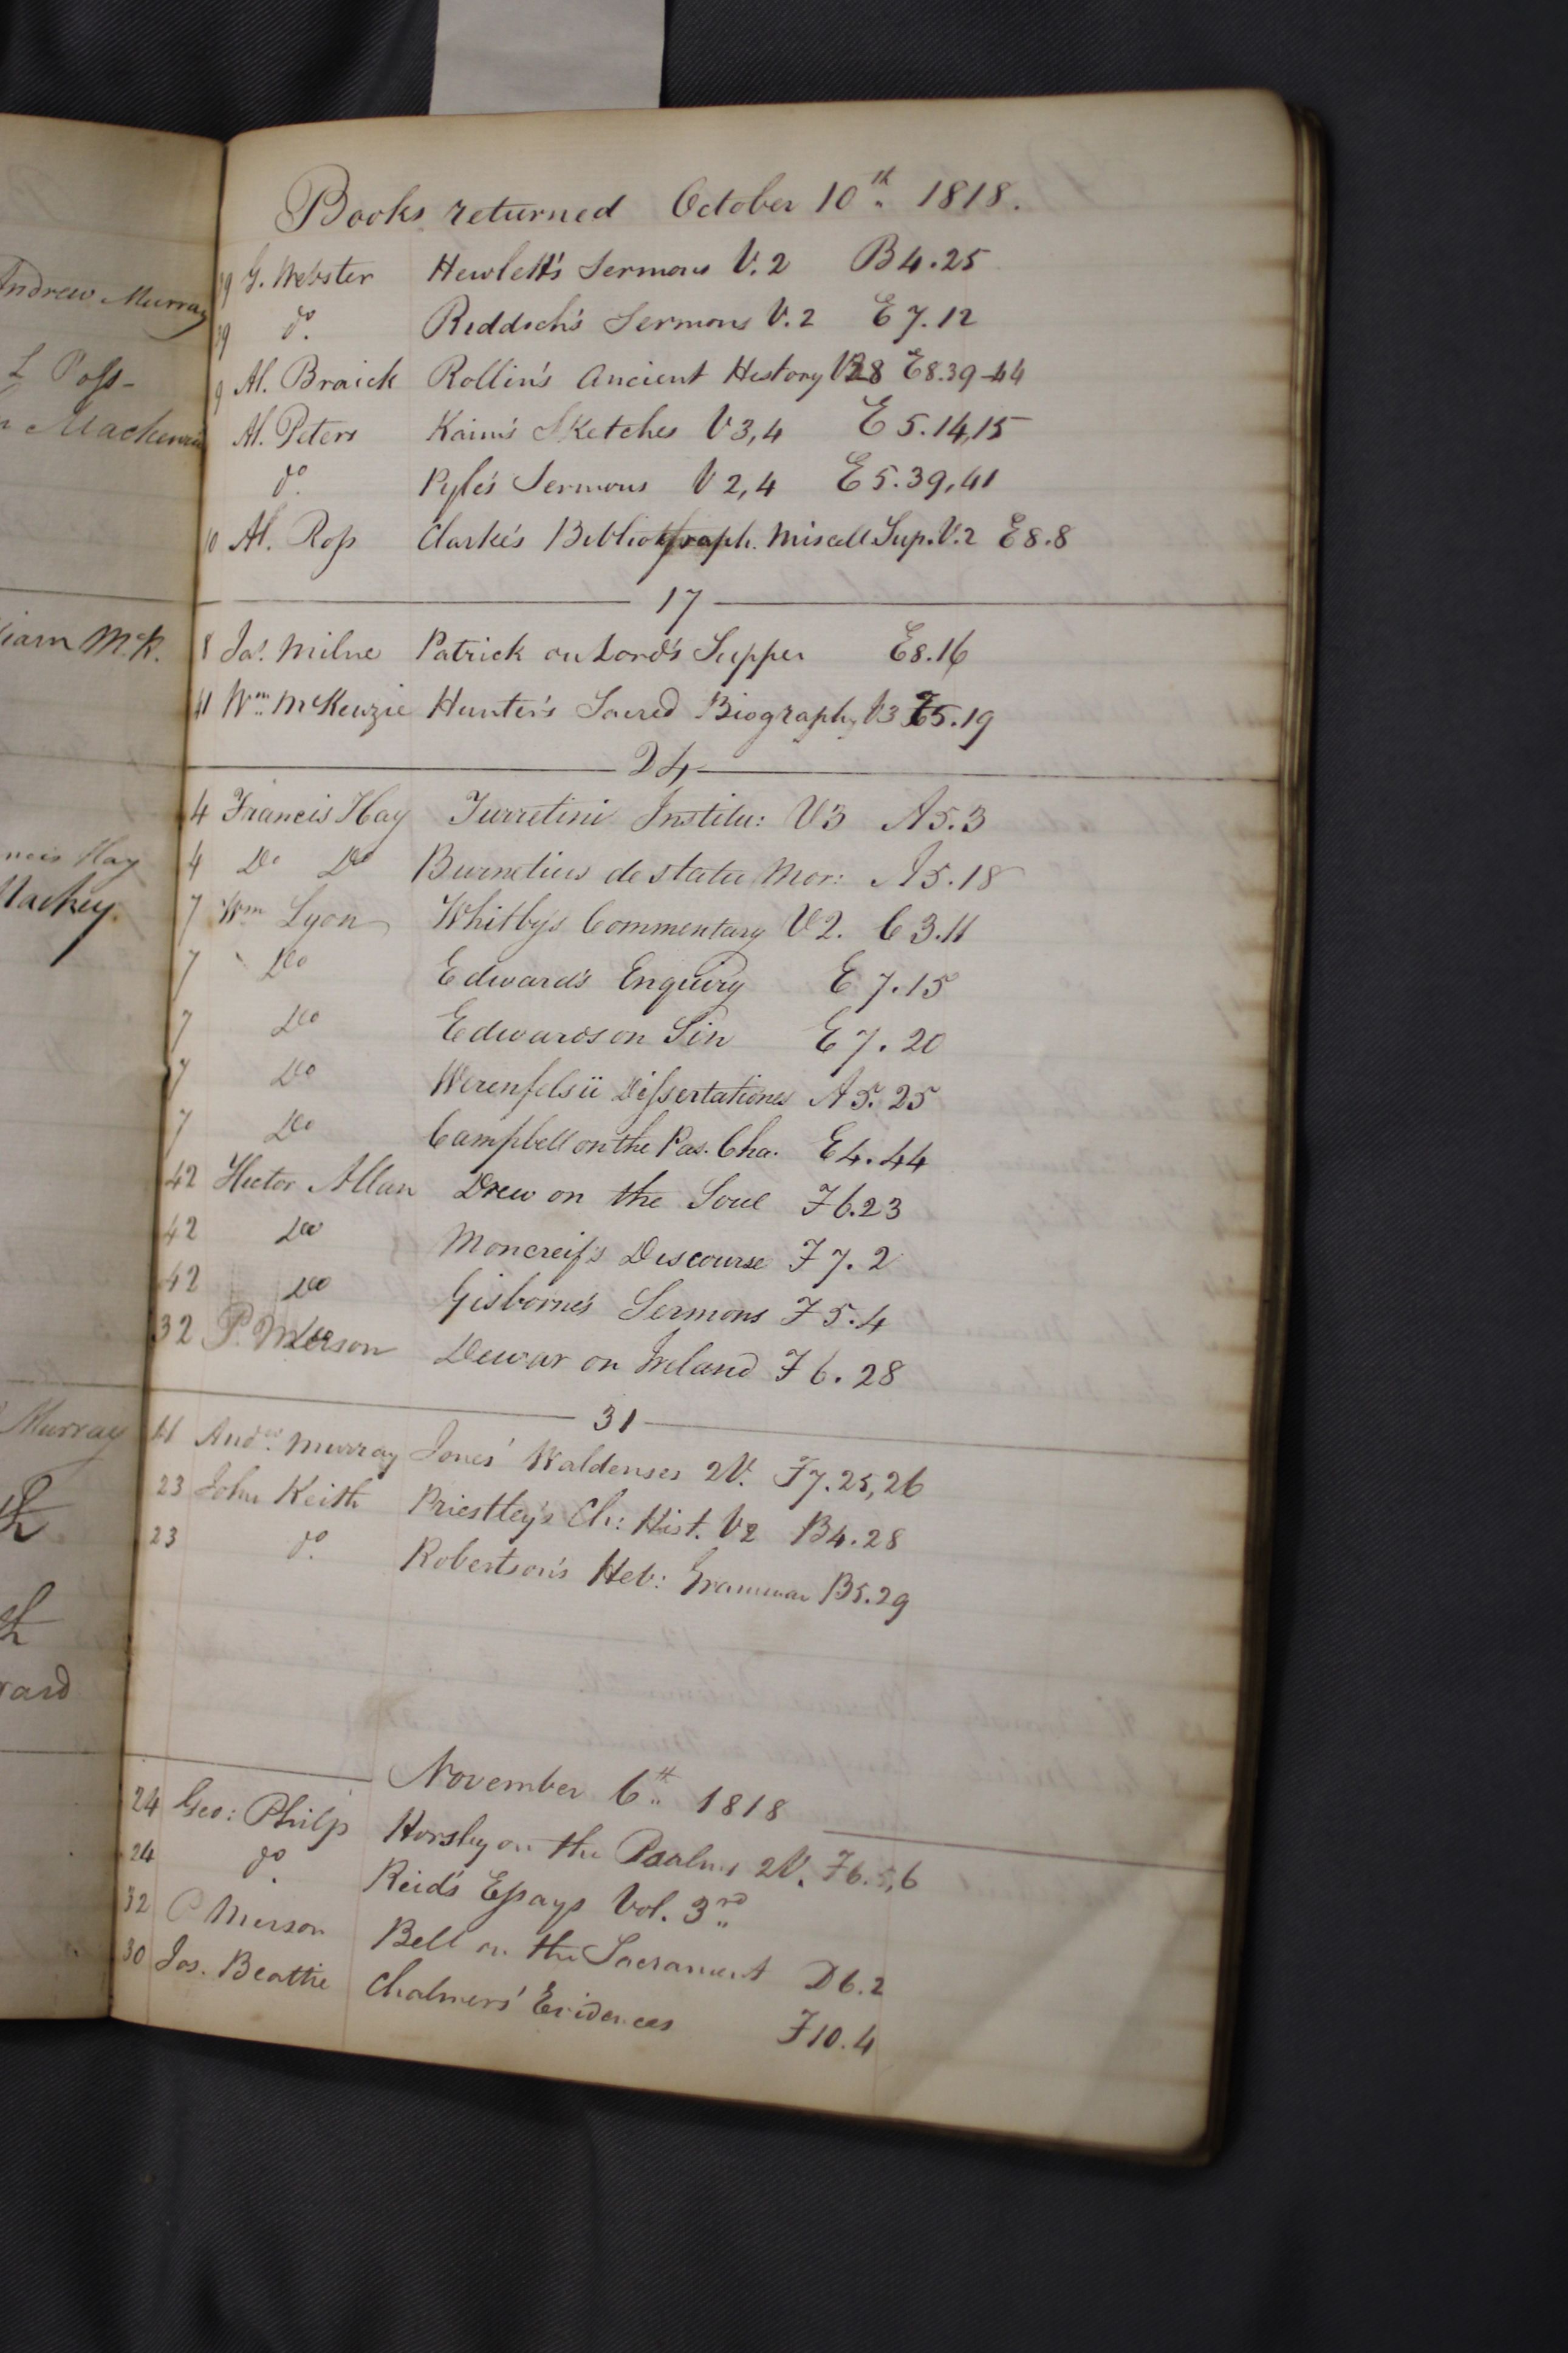 Books returned October 10th 1818.
19 G. Webster Hewlett's Sermons V. 2 B4.25
19 do. Riddoch's Sermons V. 2 E7.12
9 Al. Braick Rollin's Ancient History E8.39-44
Al. Peters Kaim's Sketches V3,4 E5.14,15
do. Pyle's Sermons V2,4 E5.39,41
10 Al. Ross Clarke's Bibliograph. Miscell Sup. V.2 E8.8
17
8 Jas. Milne Patrick on Lord's Supper E8.16
41 Wm. McKenzie Hunter's Sacred Biography V3 5.19
24
4 Francis Hay Turretini Institu: V3 A5.3
4 Do Do Burnetius de statu Mor: A5.18
7 Wm Lyon Whitby's Commentary V2. C3.11
7 Do Edward's Enquiry E7.15
7 Do Edwards on Sin E7.20
7 Do Werenfelsii Dissertationes A5.25
7 Do Campbell on the Pas. Cha. E4.44
42 Hector Allan Drew on the Soul F6.23
42 Do Moncreif's Discourse F7.2
42 Do Gisborne's Sermons F5.4
32 P. Merson Dewar on Ireland F6.28
31
41 Andw. Murray Jones' Waldenses 2V. F7.25,26
23 John Keith Priestley's Ch: Hist. V2 B4.28
23 do. Robertson's Heb: Grammar B5.29
November 6th 1818
24 Geo: Philp Horsley on the Psalms 2V. F6.5,6
24 do. Reid's Essays Vol. 3rd
32 P Merson Bell on the Sacrament D6.2
30 Jas. Beattie Chalmers' Evidences F10.4
Andrew Murray
Mackenzie
liam McK.
ncis Hay
Mackey.
Murray